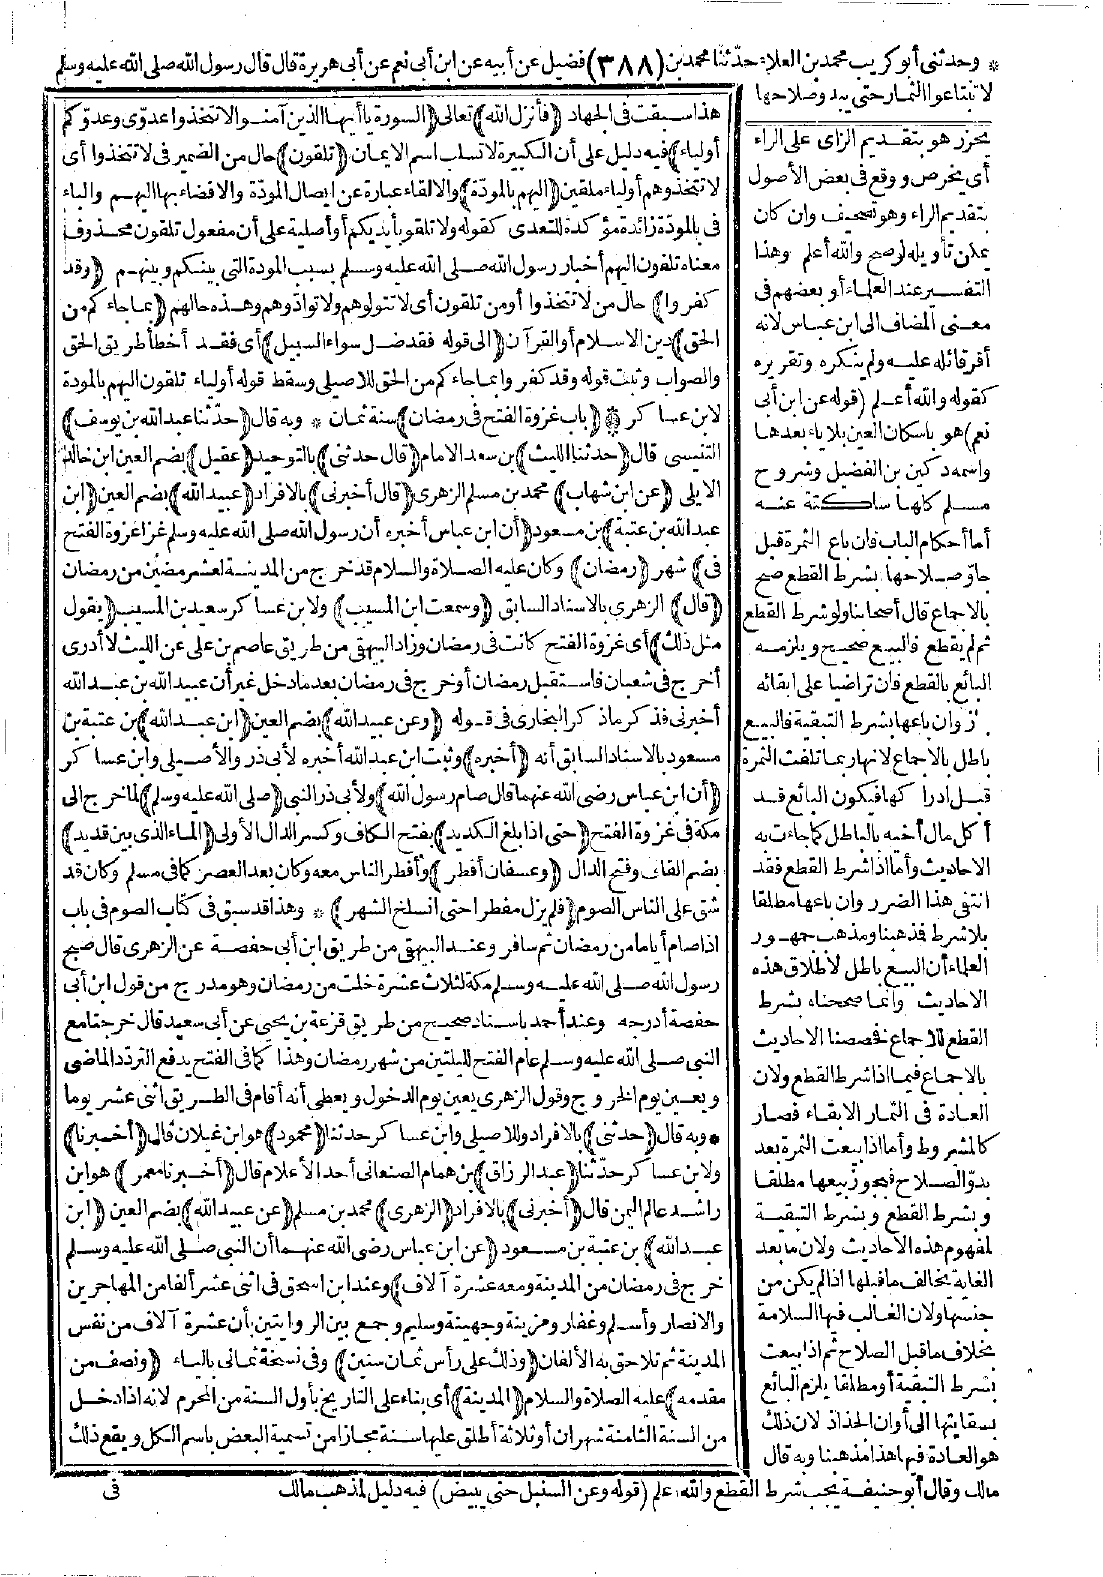 * وحدثنى أبو كريب محمد بن العلاء حدّثنا محمد بن (٣٨٨) فضيل عن أبيه عن ابن أبى نعم عن أبى هريرة قال قال رسول الله صلى الله عليه وسلم
لا تبتاعوا الثمار حتى يبدو صلاحها
يحزر هو بتقديم الزاى على الراء
أى يخرص ووقع فى بعض الأصول
بتقديم الراء وهو تصحيف وان كان
يمكن تأويله لو صح والله أعلم وهذا
التفسير عند العلماء أو بعضهم فى
معنى المضاف الى ابن عباس لانه
أقر قائله عليه ولم ينكره وتقريره
كقوله والله أعلم (قوله عن ابن أبى
نعم) هو باسكان العين بلا ياء بعدها
واسمه دكين بن الفضيل وشروح
مسلم كلها ساكتة عنه
أما أحكام الباب فان باع الثمرة قبل
بدو صلاحها بشرط القطع صح
بالاجماع قال أصحابنا ولو شرط القطع
ثم لم يقطع فالبيع صحيح ويلزمه
البائع بالقطع فان تراضيا على ابقائه
جاز وان باعها بشرط التبقية فالبيع
باطل بالاجماع لانها ربما تلفت الثمرة
قبل ادراكها فيكون البائع قد
أكل مال أخيه بالباطل كما جاءت به
الاحاديث وأما اذا شرط القطع فقد
انتفى هذا الضرر وان باعها مطلقا
بلا شرط فمذهبنا ومذهب جمهور
العلماء أن البيع باطل لاطلاق هذه
الاحاديث وانما صححناه بشرط
القطع للاجماع فخصصنا الاحاديث
بالاجماع فيما اذا شرط القطع ولان
العادة فى الثمار الابقاء فصار
كالمشروط وأما اذا بيعت الثمرة بعد
بدوّ الصلاح فيجوز بيعها مطلقا
وبشرط القطع وبشرط التبقية
لمفهوم هذه الاحاديث ولان ما بعد
الغاية يخالف ما قبلها اذا لم يكن من
جنسها ولان الغالب فيها السلامة
بخلاف ما قبل الصلاح ثم اذا بيعت
بشرط التبقية أو مطلقا يلزم البائع
بسقايتها الى أوان الجذاذ لان ذلك
هو العادة فيها هذا مذهبنا وبه قال
مالك وقال أبو حنيفة يجب شرط القطع والله أعلم (قوله وعن السنبل حتى يبيض) فيه دليل لمذهب مالك
هذا سبقت فى الجهاد (فأنزل الله) تعالى (السورة يا أيها الذين آمنوا لا تتخذوا عدوّى وعدوّكم
أولياء) فيه دليل على أن الكبيرة لا تسلب اسم الايمان (تلقون) حال من الضمير فى لا تتخذوا أى
لا تتخذوهم أولياء ملقين (اليهم بالمودّة) والالقاء عبارة عن ايصال المودّة والافضاء بها اليهم والباء
فى بالمودّة زائدة مؤكدة للتعدى كقوله ولا تلقوا بأيديكم أو أصلية على أن مفعول تلقون محذوف
معناه تلقون اليهم أخبار رسول الله صلى الله عليه وسلم بسبب المودة التى بينكم وبينهم (وقد
كفروا) حال من لا تتخذوا أو من تلقون أى لا تتولوهم ولا توادّوهم وهذه حالهم (بما جاءكم من
الحق) دين الاسلام أو القرآن (الى قوله فقد ضل سواء السبيل) أى فقد أخطأ طريق الحق
والصواب وثبت قوله وقد كفروا بما جاءكم من الحق للاصيلى وسقط قوله أولياء تلقون اليهم بالمودة
لابن عساكر * (باب غزوة الفتح فى رمضان) سنة ثمان * وبه قال (حدّثنا عبد الله بن يوسف)
التنيسى قال (حدثنا الليث) بن سعد الامام (قال حدثنى) بالتوحيد (عقيل) بضم العين ابن خالد
الايلى (عن ابن شهاب) محمد بن مسلم الزهرى (قال أخبرنى) بالافراد (عبيد الله) بضم العين (ابن
عبد الله بن عتبة) بن مسعود (أن ابن عباس أخبره أن رسول الله صلى الله عليه وسلم غزا غزوة الفتح
فى) شهر (رمضان) وكان عليه الصلاة والسلام قد خرج من المدينة لعشر مضين من رمضان
(قال) الزهرى بالاسناد السابق (وسمعت ابن المسيب) ولابن عساكر سعيد بن المسيب (يقول
مثل ذلك) أى غزوة الفتح كانت فى رمضان وزاد البيهقى من طريق عاصم بن على عن الليث لا أدرى
أخرج فى شعبان فاستقبل رمضان أو خرج فى رمضان بعد ما دخل غير أن عبيد الله بن عبد الله
أخبرنى فذكر ما ذكر البخارى فى قوله (وعن عبيد الله) بضم العين (ابن عبد الله) بن عتبة بن
مسعود بالاسناد السابق أنه (أخبره) وثبت ابن عبد الله أخبره لأبى ذر والأصيلى وابن عساكر
(أن ابن عباس رضى الله عنهما قال صام رسول الله) ولأبى ذر النبى (صلى الله عليه وسلم) لما خرج الى
مكة فى غزوة الفتح (حتى اذا بلغ الكديد) بفتح الكاف وكسر الدال الأولى (الماء الذى بين قديد)
بضم القاف وفتح الدال (وعسفان أفطر) وأفطر الناس معه وكان بعد العصر كما فى مسلم وكان قد
شق على الناس الصوم (فلم يزل مفطرا حتى انسلخ الشهر) * وهذا قد سبق فى كتاب الصوم فى باب
اذا صام أياما من رمضان ثم سافر وعند البيهقى من طريق ابن أبى حفصة عن الزهرى قال صبح
رسول الله صلى الله عليه وسلم مكة لثلاث عشرة خلت من رمضان وهو مدرج من قول ابن أبى
حفصة أدرجه وعند أحمد باسناد صحيح من طريق قزعة بن يحيى عن أبى سعيد قال خرجنا مع
النبى صلى الله عليه وسلم عام الفتح لليلتين من شهر رمضان وهذا كما فى الفتح يدفع التردّد الماضى
ويعين يوم الخروج وقول الزهرى يعين يوم الدخول ويعطى أنه أقام فى الطريق اثنى عشر يوما
* وبه قال (حدثنى) بالافراد وللاصيلى وابن عساكر حدثنا (محمود) هو ابن غيلان قال (أخبرنا)
ولابن عساكر حدّثنا (عبد الرزاق) بن همام الصنعانى أحد الأعلام قال (أخبرنا معمر) هو ابن
راشد عالم اليمن قال (أخبرنى) بالافراد (الزهرى) محمد بن مسلم (عن عبيد الله) بضم العين (ابن
عبد الله) بن عتبة بن مسعود (عن ابن عباس رضى الله عنهما أن النبى صلى الله عليه وسلم
خرج فى رمضان من المدينة ومعه عشرة آلاف) وعند ابن اسحق فى اثنى عشر ألفا من المهاجرين
والانصار وأسلم وغفار ومزينة وجهينة وسليم وجمع بين الروايتين بأن عشرة آلاف من نفس
المدينة ثم تلاحق به الألفان (وذلك على رأس ثمان سنين) وفى نسخة ثمانى بالياء (ونصف من
مقدمه) عليه الصلاة والسلام (المدينة) أى بناء على التاريخ بأول السنة من المحرم لانه اذا دخل
من السنة الثامنة شهران أو ثلاثة أطلق عليها سنة مجازا من تسمية البعض باسم الكل ويقع ذلك
فى